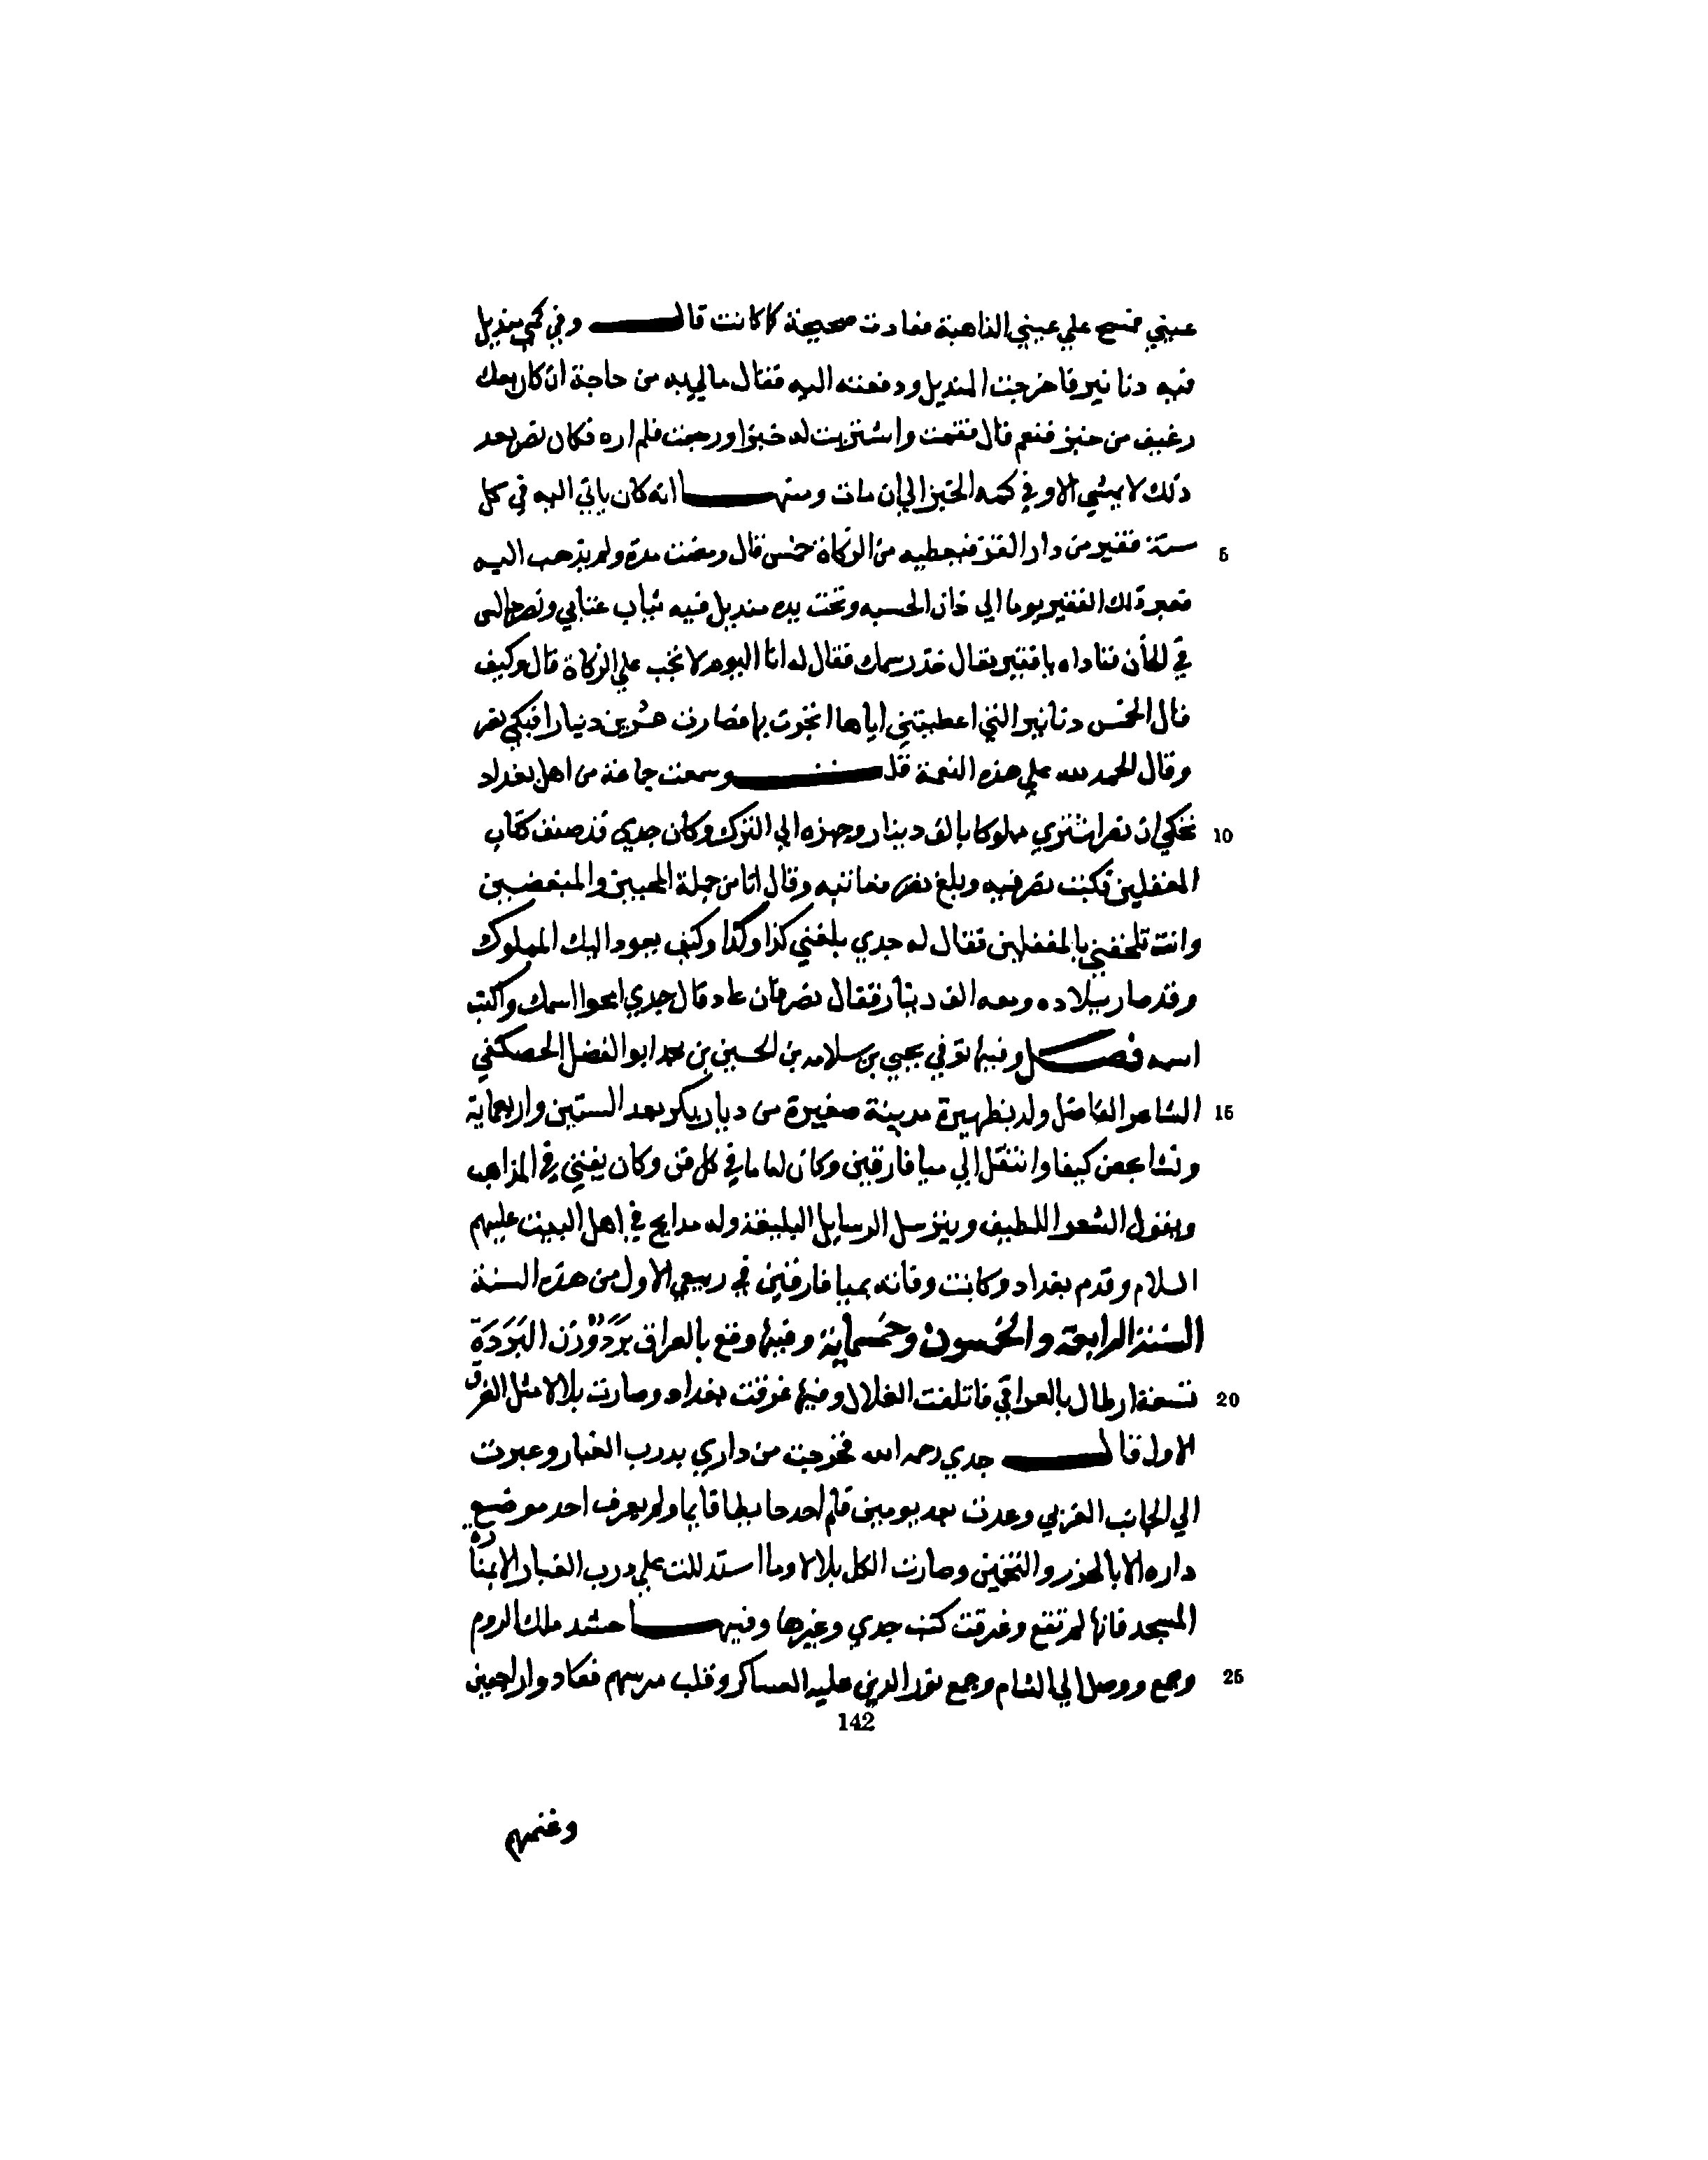 عيني فمسح علي عيني الذاهبة فعادت صحيحة كما كانت قال وفي كمي منديل
فيه دنانير فاخرجت المنديل ودفعته اليه فقال مالي به من حاجة ان كان معك
رغيف من خبز فنعم قال فقمت واشتريت له خبزا ورجعت فلم اره فكان نصر بعد
ذلك لا يمشي الا وفي كمه الخبز الي ان مات ومنها انه كان ياتي اليه في كل
5 سنة فقير من دار القز فيعطيه من الزكاة خمس قال ومضت مدة ولم يذهب اليه
فعبر ذلك الفقير يوما الي خان الحسبه وتحت يده منديل فيه ثياب عتابي ونصر جالس
في الخان فناداه يا فقير تعال خذ رسمك فقال له انا اليوم لا تجب علي الزكاة قال وكيف
قال الخمس دنانير التي اعطيتني اياها اتجرت بها فصارت عشرين دينارا فبكي نصر
وقال الحمد لله علي هذه النعمة قلت وسمعت جماعة من اهل بغداد
10 تحكي ان نصرا اشتري مملوكا بالف دينار وجهزه الي الترك وكان جدي قد صنف كتاب
المغفلين فكتب نصر فيه وبلغ نصر فعاتبه وقال انا من جملة المحبين والمبغضين
وانت تلحقني بالمغفلين فقال له جدي بلغني كذا وكذا وكيف يعود اليك المملوك
وقد صار ببلاده ومعه الف دينار فقال نصر فان عاد قال جدي امحوا اسمك واكتب
اسمه فصل وفيها توفي يحيي بن سلامه بن الحسين بن محمد ابو الفضل الحصكفي
15 الشاعر الفاضل ولد بطهيرة مدينة صغيرة من ديار بكر بعد الستين واربعماية
ونشا بحصن كيفا وانتقل الي ميافارقين وكان اماما في كل فن وكان يفتي في المذاهب
ويقول الشعر اللطيف ويترسل الرسايل البليغة وله مدايح في اهل البيت عليهم
السلام وقدم بغداد وكانت وفاته بميافارقين في ربيع الاول من هذه السنة
السنة الرابعة والخمسون وخمسماية وفيها وقع بالعراق بَرَد وَزن البَرَدَة
20 تسعة ارطال بالعراقي فاتلفت الغلال وفيها غرقت بغداد وصارت بلالا مثل الغرق
الاول قال جدي رحمه الله فخرجت من داري بدرب القيار وعبرت
الي الجانب الغربي وعدت بعد يومين فلم اجد حايطا قايما ولم يعرف احد موضع
داره الا بالحزر والتخمين وصارت الكل بلالا وما استدللت علي درب القيار الا بمنارة
المسجد فانها لم تقع وغرقت كتب جدي وغيرها وفيها حشد ملك الروم
25 وجمع ووصل الي الشام وجمع نور الدين عليه العساكر وقلب مدسهم فعادوا راجعين
142
وغنمهم